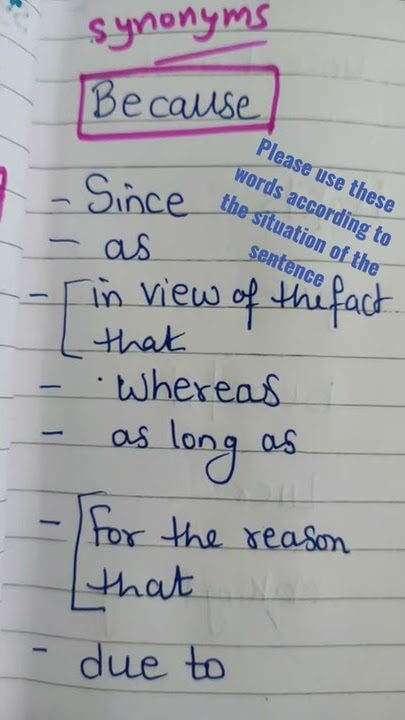 synonyms
Because
Please use these
words according to
the situation of the
sentence
- Since
- as
- in view of the fact
that
- whereas
- as long as
- for the reason
that
- due to